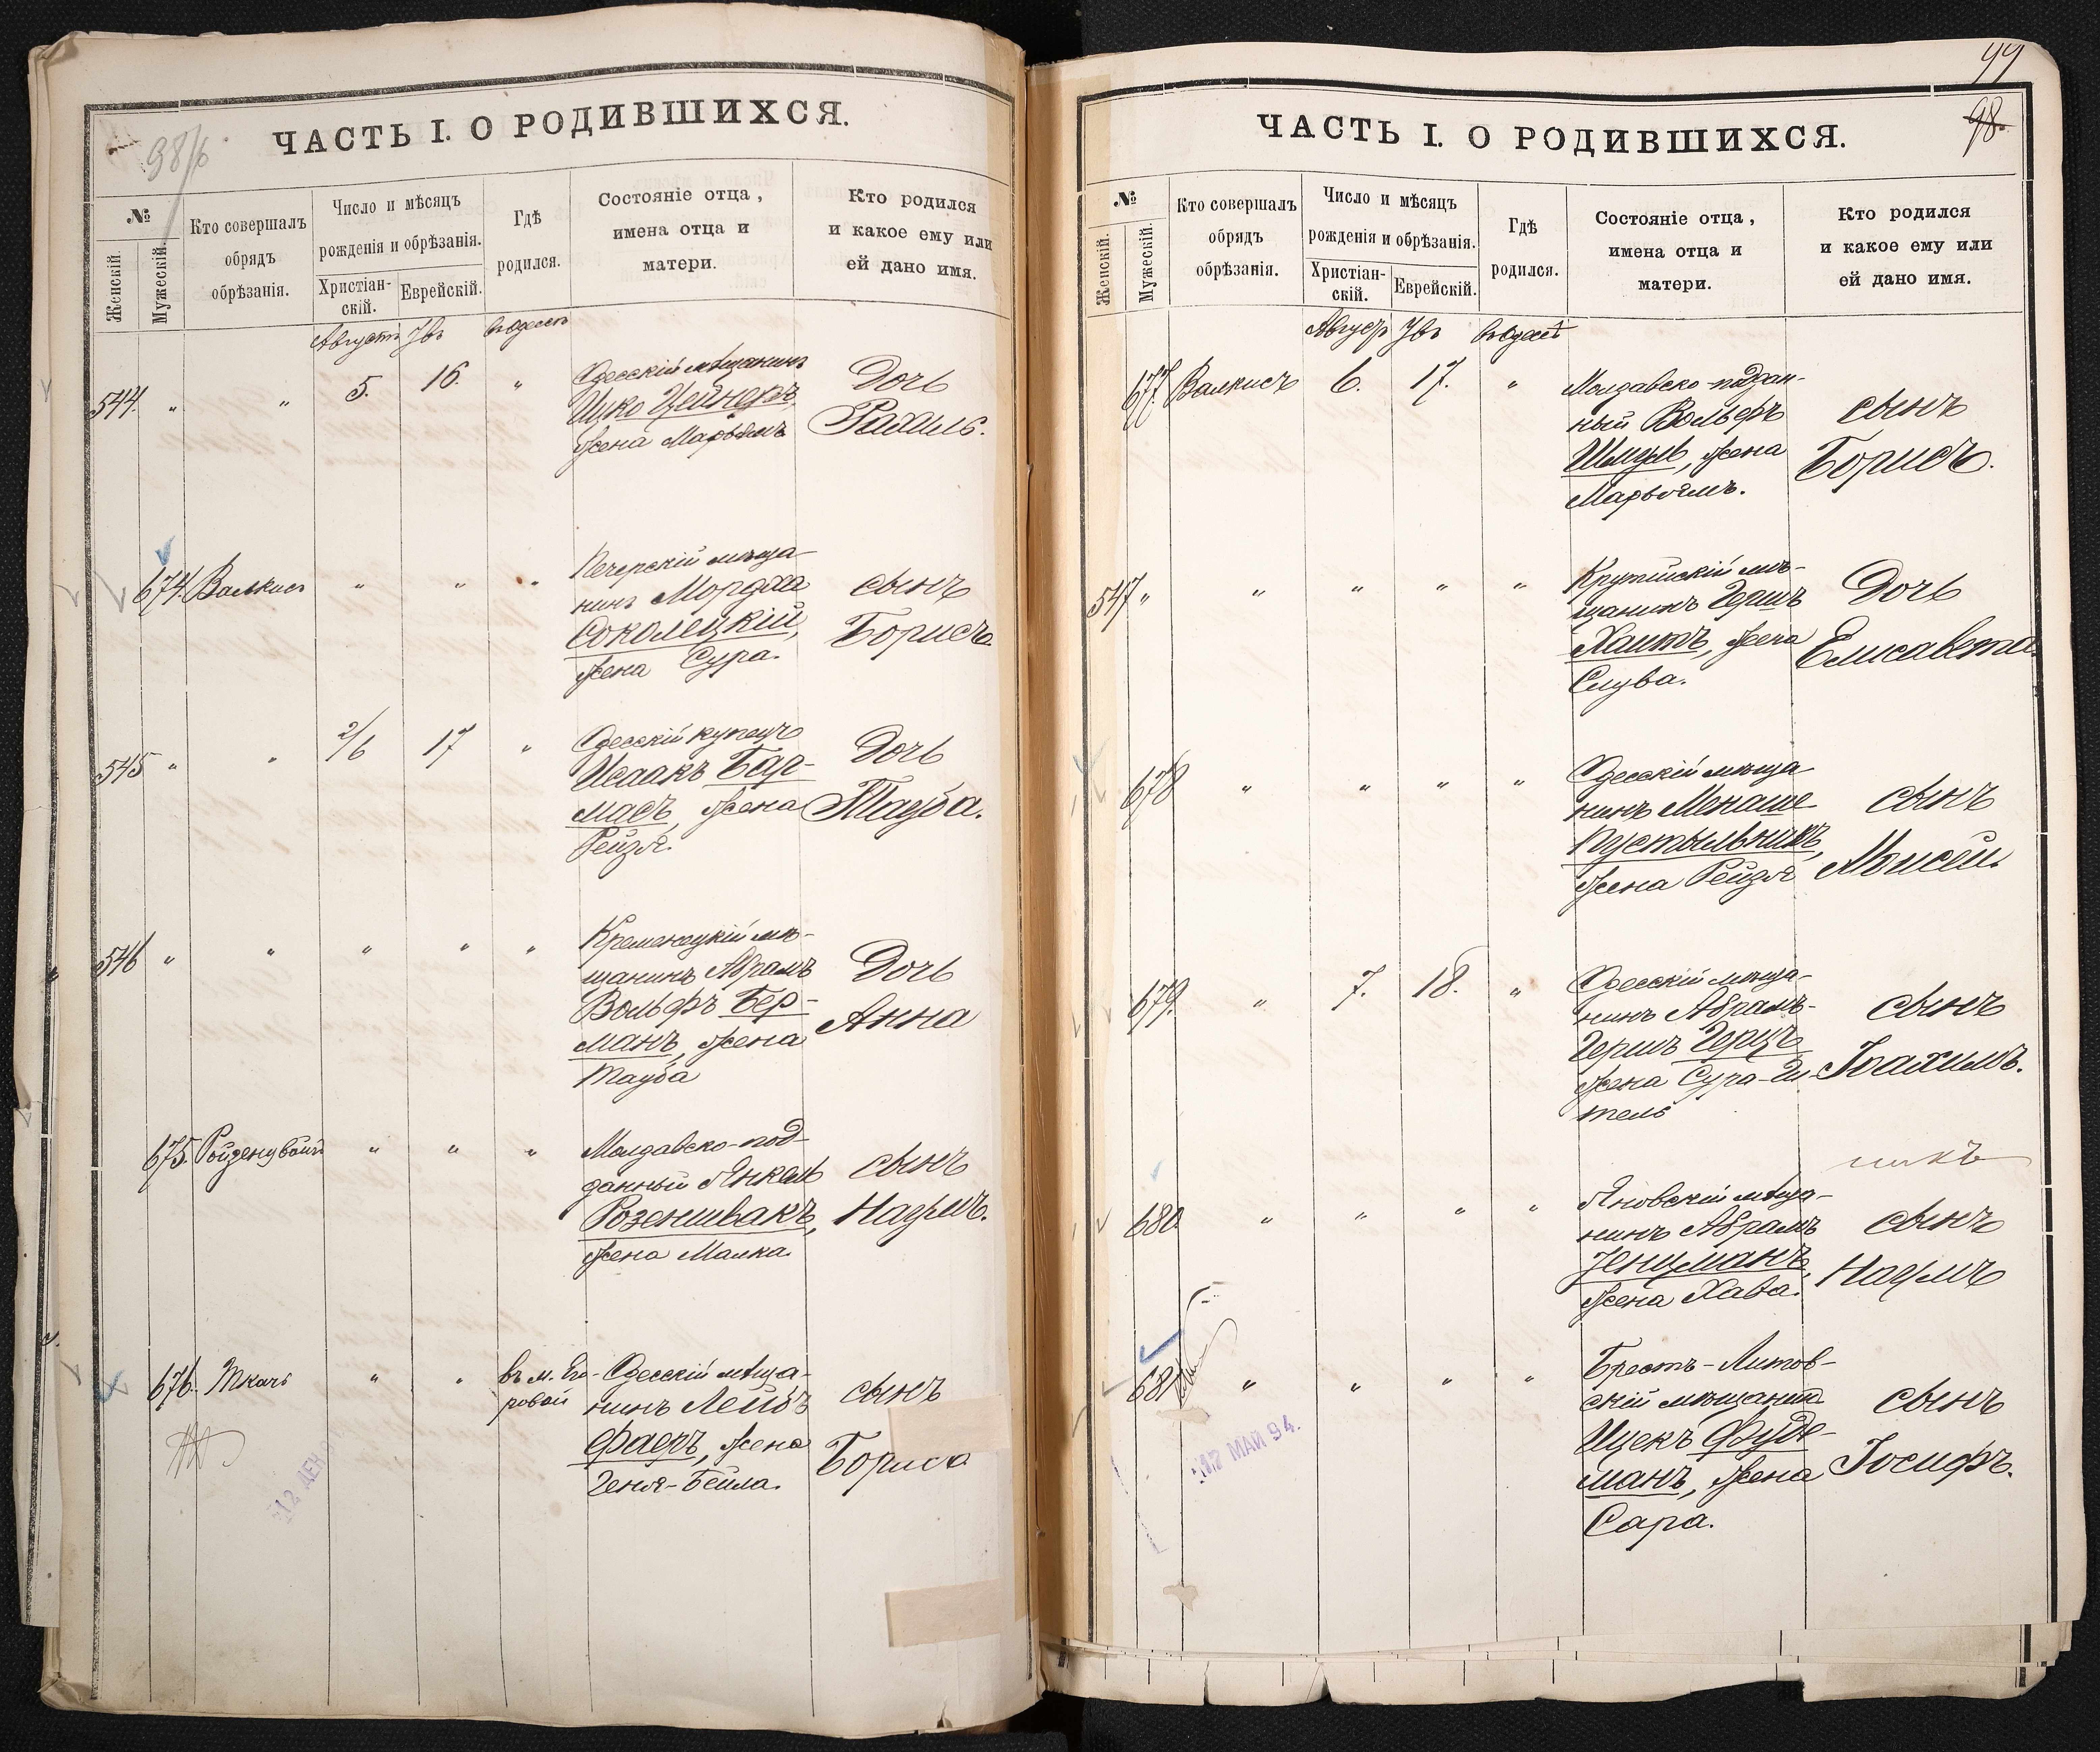 ЧАСТЬ I. О РОДИВШИХСЯ.
98/б
№
Женскій.
Мужескій.
Кто совершалъ
обрядъ
обрѣзанія.
Число и мѣсяцъ
рожденія и обрѣзанія.
Христіан-
скій.
Еврейскій.
Гдѣ
родился.
Состояніе отца,
имена отца и
матери.
Кто родился
и какое ему или
ей дано имя.
Августъ Увъ въ Одессѣ
544. " " 5. 16. "
Одесскій мѣщанинъ
Ицко Цейнеръ
жена Марьямъ
Дочь
Рахиль.
674. Валкисъ " " "
Печерскій мѣща-
нинъ Мордха
Соколецкій,
жена Сура.
сынъ
Борисъ
545 " " 2/6 17 "
Одесскій купецъ
Исаакъ Бар-
мадъ, жена
Рейзя.
Дочь
Тауба.
546 " " " " "
Кременецкій мѣ-
щанинъ Абрамъ
Вольфъ Бер-
манъ, жена
Тауба
Дочь
Анна
675. Ройзенцвайгъ " " "
Молдавско-под-
данный Янкель
Розеншвакъ,
жена Малка.
сынъ
Наумъ.
676. Ткачъ " " въ м. Его-
ровой
Одесскій мѣща-
нинъ Лейбъ
Фаеръ, жена
Геня-Бейла.
сынъ
Бориса
12 ДЕН
99
98.
ЧАСТЬ I. О РОДИВШИХСЯ.
№
Женскій.
Мужескій.
Кто совершалъ
обрядъ
обрѣзанія.
Число и мѣсяцъ
рожденія и обрѣзанія.
Христіан-
скій.
Еврейскій.
Гдѣ
родился.
Состояніе отца,
имена отца и
матери.
Кто родился
и какое ему или
ей дано имя.
Август Увъ въ Одессѣ
677. Валкисъ 6. 17. "
Молдавско-поддан-
ный Вольфъ
Шмуль, жена
Марьямъ.
сынъ
Борисъ.
547 " " " " "
мѣ-
щанинъ Гершъ
Хаитъ, жена
Слува.
Дочь
Елисавета.
678 " " " "
Одесскій мѣща
нинъ Менаше
Пустыльникъ,
жена Рейзя
сынъ
Моисей.
679. " 7. 18. "
Одесскій мѣща-
нинъ Абрамъ-
Гершъ Герцъ
жена Сура-Ги-
тель
сынъ
Іоахимъ.
никъ
680 " " " "
Яновскій мѣща-
нинъ Абрамъ
Генцманъ,
жена Хава.
сынъ
Наумъ
681 " " " "
Брестъ-Литов-
скій мѣщанинъ
Ицекъ Фуде-
манъ, жена
Сара.
сынъ
Іосифъ.
12 МАЙ 94.